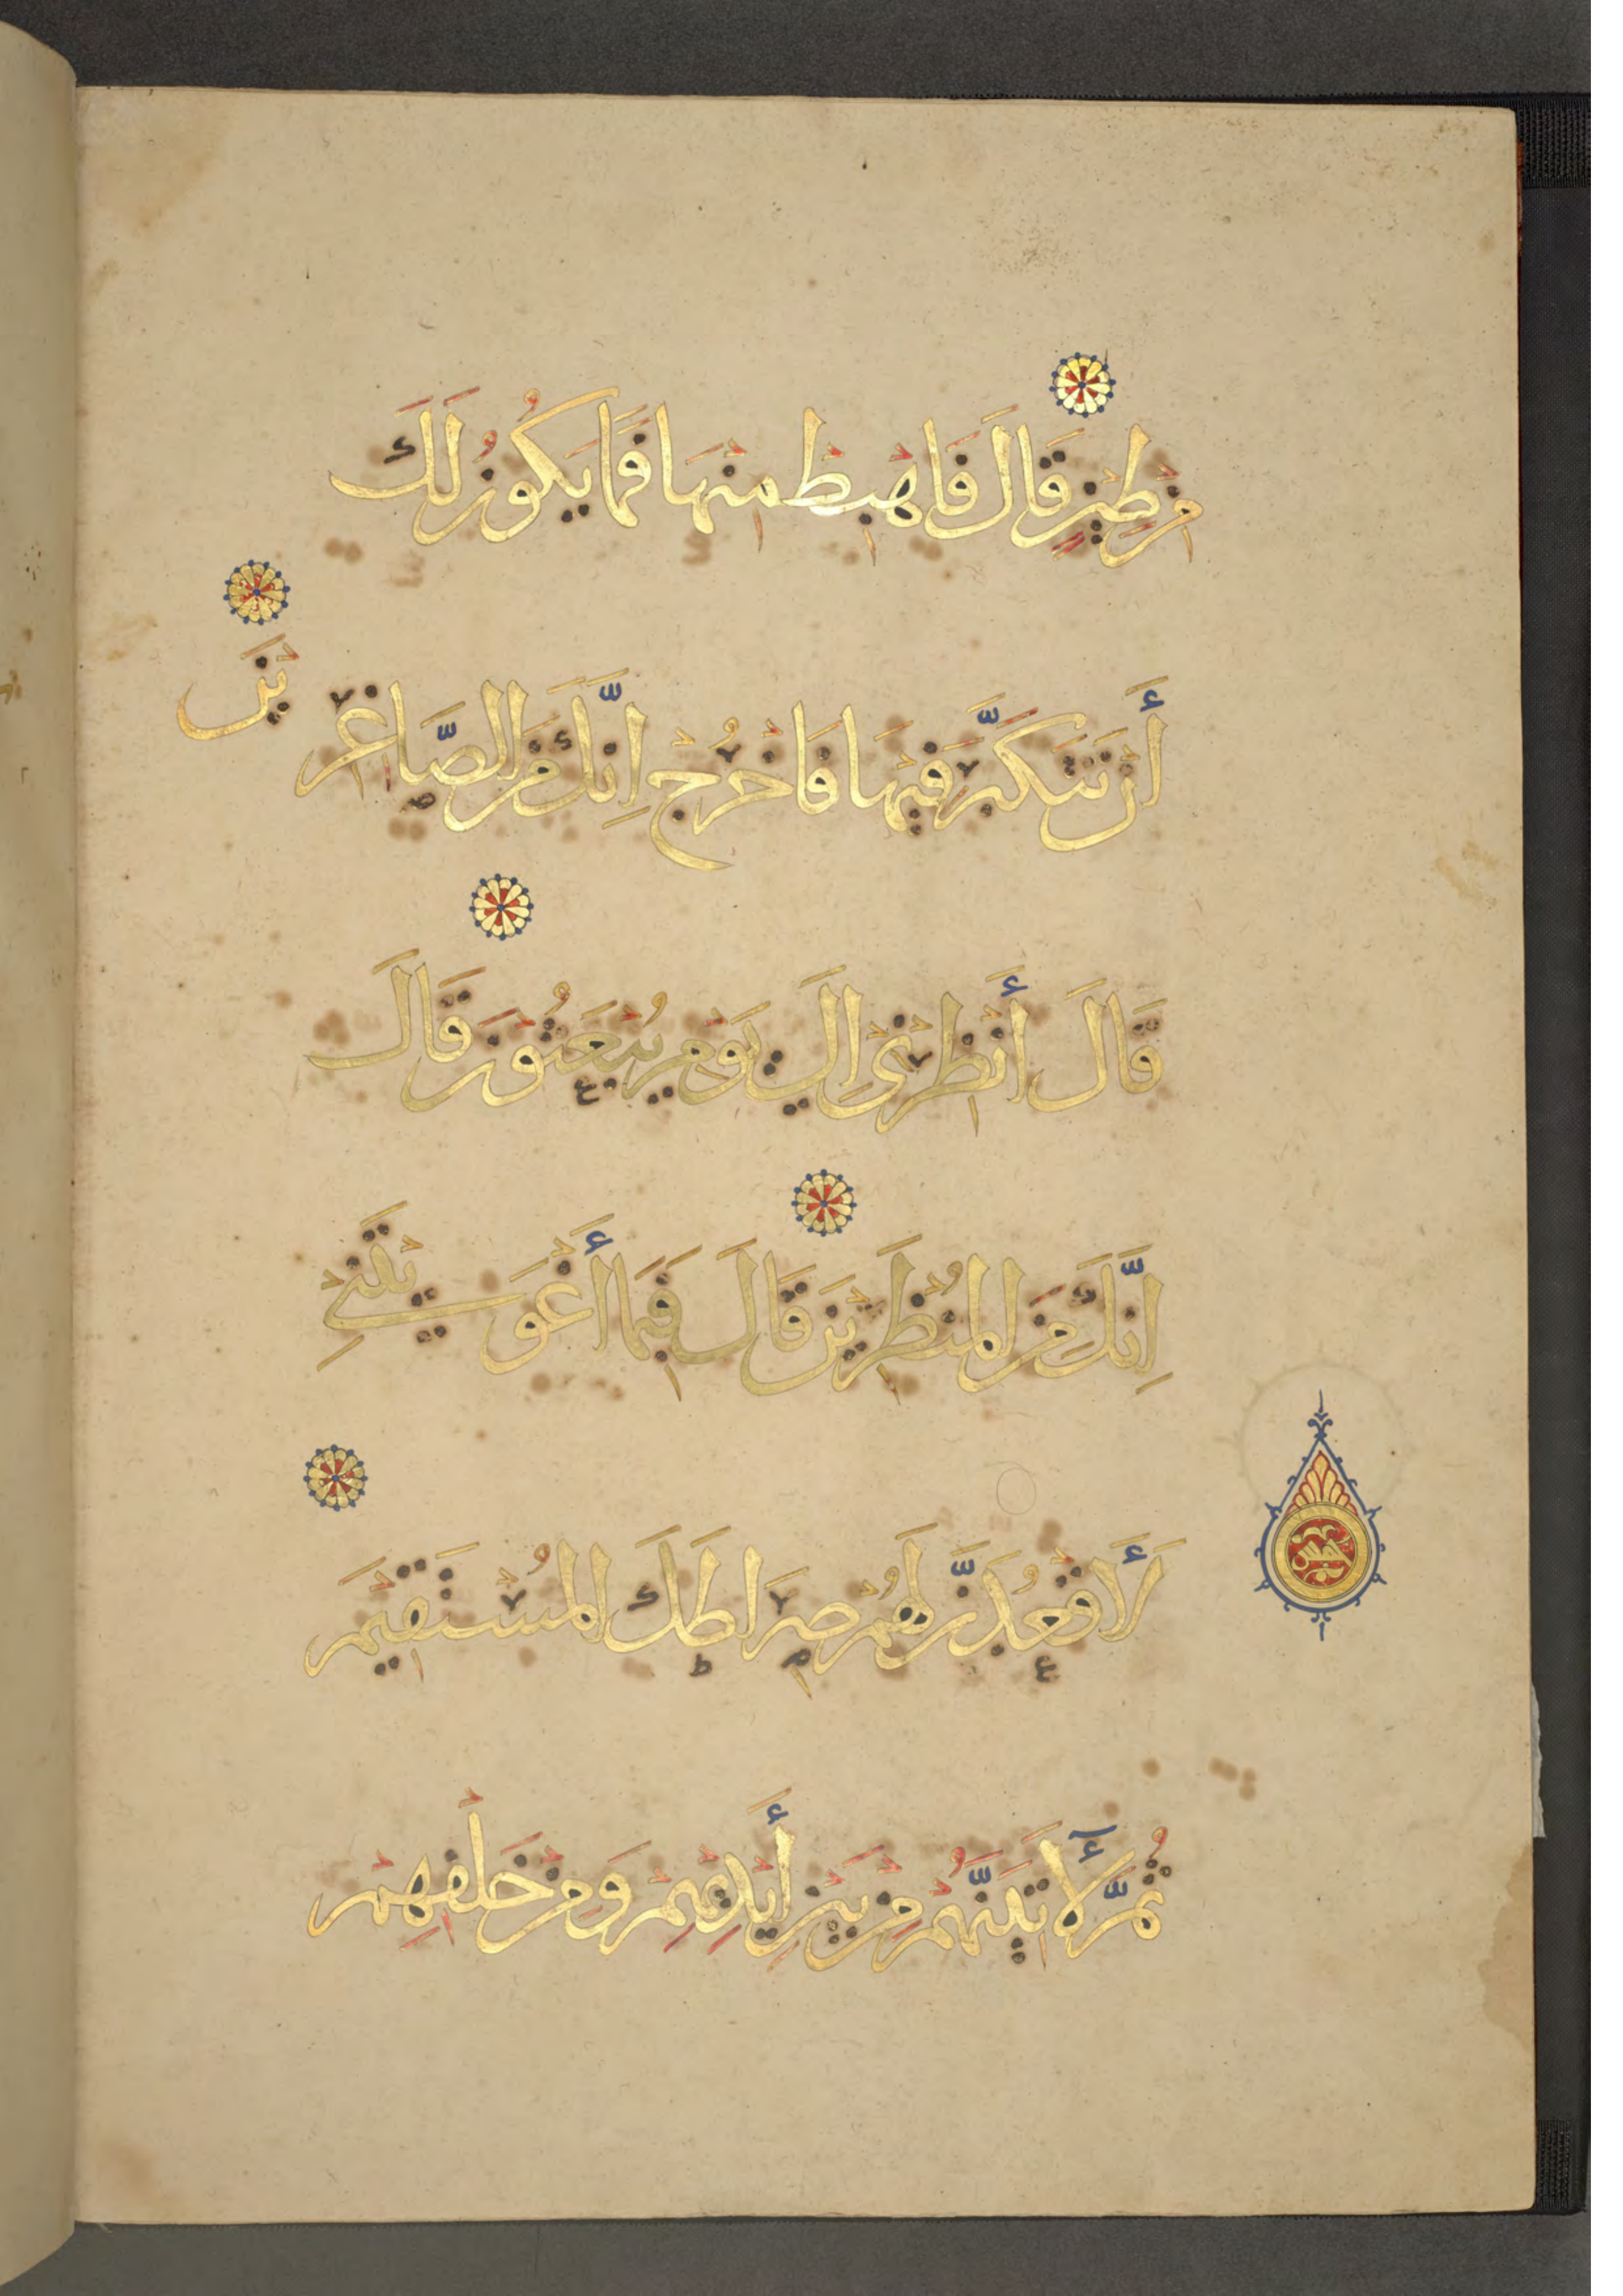 مِنْ طِيْنٍ قَالَ فَاهْبِطْ مِنْهَا فَمَا يَكُوْنُ لَكَ
أَنْ تَتَكَبَّرَ فِيْهَا فَاخْرُجْ اِنَّكَ مِنَ الصَّاغِرِيْنَ
قَالَ أَنْظِرْنِيْ اِلَى يَوْمِ يُبْعَثُوْنَ قَالَ
اِنَّكَ مِنَ الْمُنْظَرِيْنَ قَالَ فَبِمَا أَغْوَيْتَنِيْ
لَأَقْعُدَنَّ لَهُمْ صِرَاطَكَ الْمُسْتَقِيْمَ
ثُمَّ لَأٓتِيَنَّهُمْ مِنْ بَيْنِ أَيْدِيْهِمْ وَمِنْ خَلْفِهِمْ